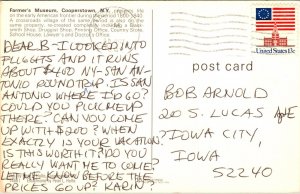 Farmer's Museum, Cooperstown, N.Y.
on the early American frontier during the period 1800-1840
A crossroads village of the same period is also on the
Smith Shop, Druggist, Printing Office, Country Store,
School House, Lawyer's and Doctor's Office.
DEAR B - I LOOKED INTO
FLIGHTS AND IT RUNS
ABOUT $400 NY-SAN AN-
TONIO ROUNDTRIP. IS SAN
ANTONIO WHERE I'D GO?
COULD YOU PICK ME UP
THERE? CAN YOU COME
UP WITH $200? WHEN
EXACTLY IS YOUR VACATION.
IS THIS WORTH IT? DO YOU
REALLY WANT ME TO COME?
LET ME KNOW BEFORE THE
PRICES GO UP? KARIN?
United States 13c
post card
BOB ARNOLD
20 S. LUCAS AVE
IOWA CITY,
IOWA
52240